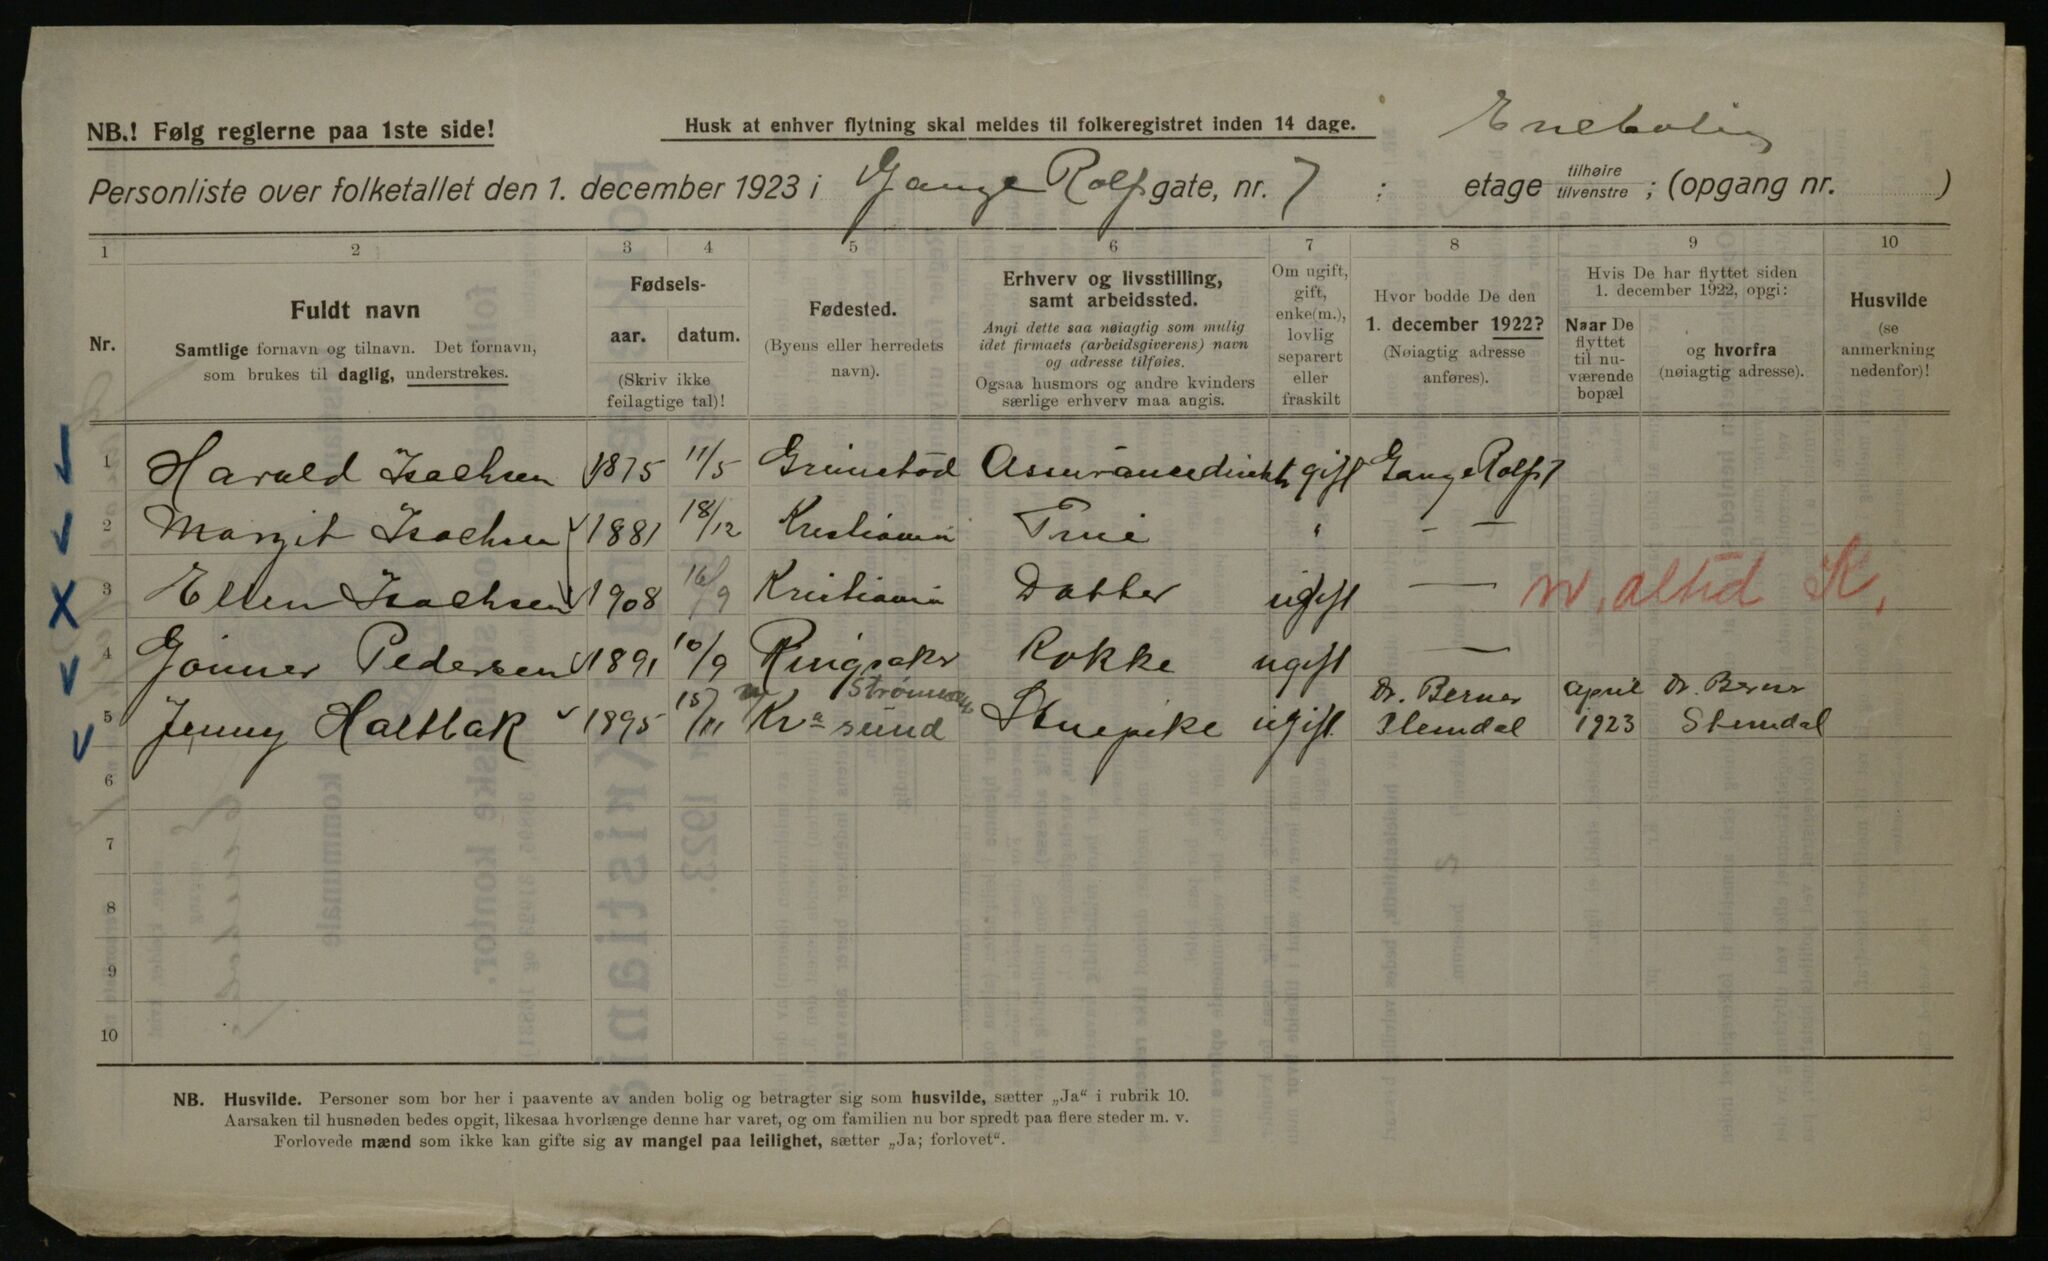 NB.! Følg reglerne paa 1ste side!
Husk at enhver flytning skal meldes til folkeregistret inden 14 dage.
Enebolig
Personliste over folketallet den 1. december 1923 i Gange Rolfs gate, nr. 7 : etage tilhøire tilvenstre ; (opgang nr. )
1 2 3 4 5 6 7 8 9 10
Nr.
Fuldt navn
Samtlige fornavn og tilnavn. Det fornavn,
som brukes til daglig, understrekes.
Fødsels-
aar. datum.
(Skriv ikke
feilagtige tal)!
Fødested.
(Byens eller herredets
navn).
Erhverv og livsstilling,
samt arbeidssted.
Angi dette saa nøiagtig som mulig
idet firmaets (arbeidsgiverens) navn
og adresse tilføies.
Ogsaa husmors og andre kvinders
særlige erhverv maa angis.
Om ugift,
gift,
enke(m.),
lovlig
separert
eller
fraskilt
Hvor bodde De den
1. december 1922?
(Nøiagtig adresse
anføres).
Hvis De har flyttet siden
1. december 1922, opgi:
Naar De
flyttet
til nu-
værende
bopæl
og hvorfra
(nøiagtig adresse).
Husvilde
(se
anmerkning
nedenfor)!
1 Harald Isachsen 1875 11/5 Grimstad Assurancedirektr gift Gange Rolfs 7
2 Margit Isachsen 1881 18/12 Kristiania Frue " — —
3 Ellen Isachsen 1908 16/9 Kristiania Datter ugift — n. altid K.
4 Gønner Pedersen 1891 10/9 Ringsaker Kokke ugift —
5 Jenny Haltbak 1895 15/11 Kra sund Stuepike ugift Dr. Berner Slemdal april 1923 Dr. Berner Slemdal
6
7
8
9
10
NB. Husvilde. Personer som bor her i paavente av anden bolig og betragter sig som husvilde, sætter „Ja“ i rubrik 10.
Aarsaken til husnøden bedes opgit, likesaa hvorlænge denne har varet, og om familien nu bor spredt paa flere steder m. v.
Forlovede mænd som ikke kan gifte sig av mangel paa leilighet, sætter „Ja; forlovet“.